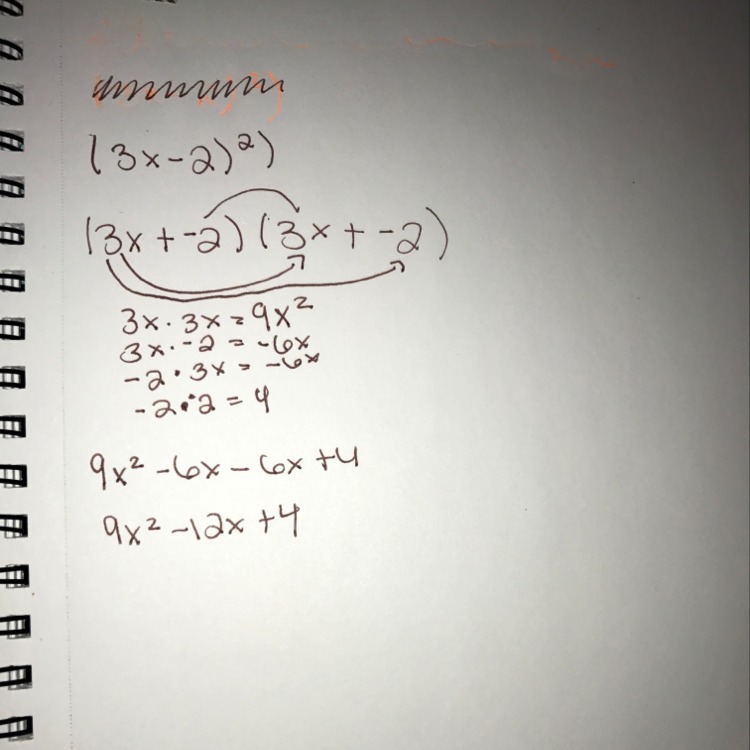 (3x-2)²)
(3x+-2)(3x+-2)
3x·3x=9x²
3x·-2=-6x
-2·3x=-6x
-2·-2=4
9x²-6x-6x+4
9x²-12x+4